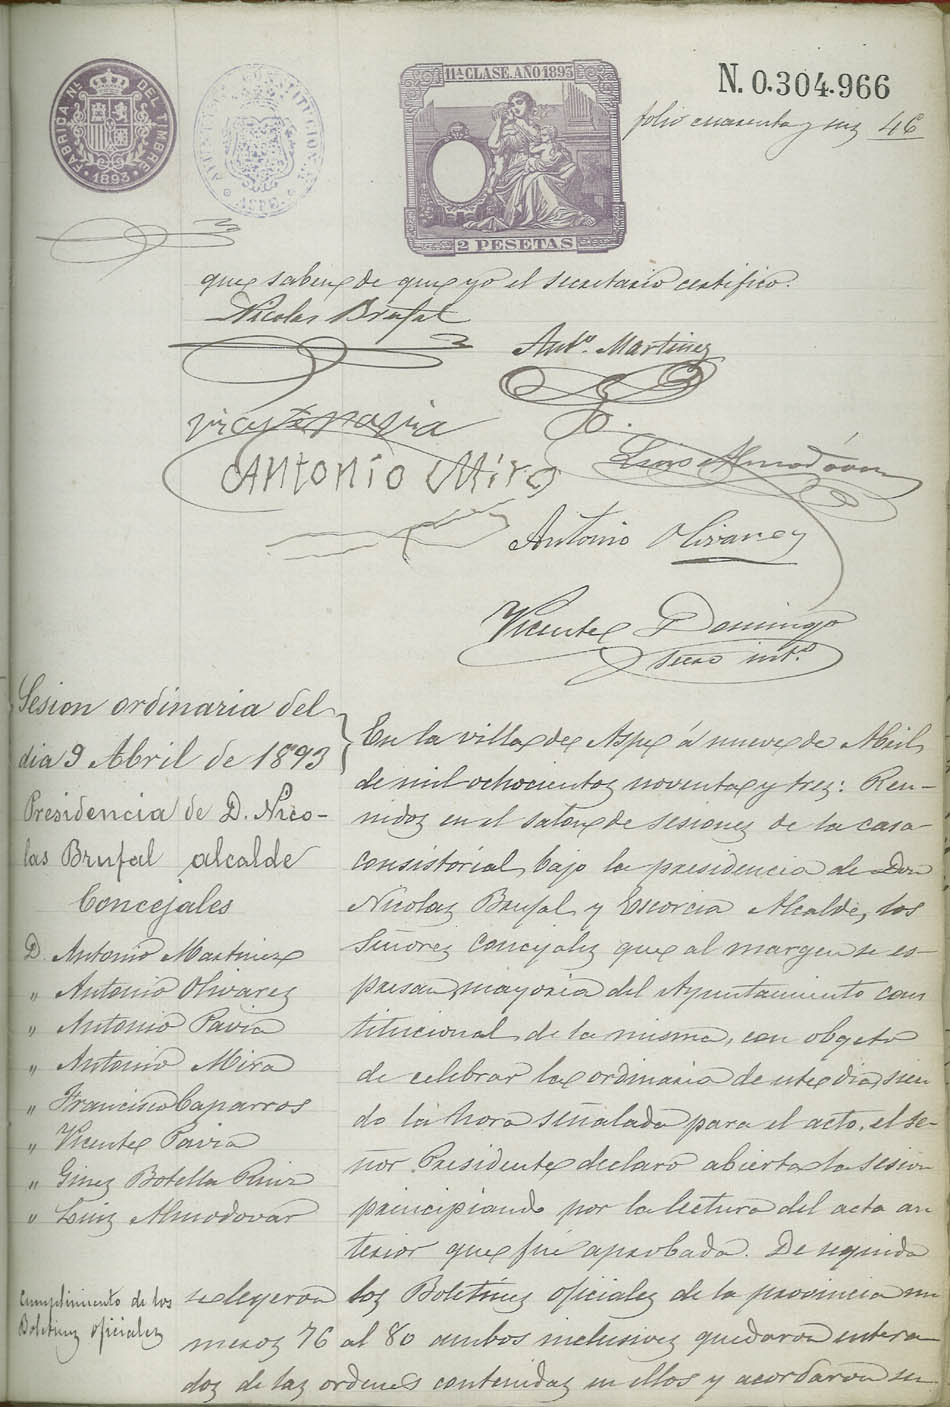 FABRICA NL. DEL TIMBRE
1893
ASPE
11ª CLASE. AÑO 1893
2 PESETAS
N. 0.304.966
folio cuarenta y seis 46
que saben de que yo el secretario certifico.
Nicolas Brufal
Anto. Martinez
Vicente Pavia
Antonio Mira
Luis Almodóvar
Antonio Olivarez
Vicente Domingo
Secro intº.
Sesion ordinaria del
dia 9 Abril de 1893
Presidencia de D. Nico-
las Brufal alcalde
Concejales
D. Antonio Martinez
" Antonio Olivarez
" Antonio Pavia
" Antonio Mira
" Francisco Caparros
" Vicente Pavia
" Ginez Botella Ruiz
" Luiz Almodovar
Cumplimiento de los
Boletinez oficialez
En la villa de Aspe á nueve de Abril
de mil ochocientoz noventa y trez: Reu-
nidoz en el salon de sesionez de la casa
consistorial, bajo la presidencia de Don
Nicolaz Brufal y Escorcia Alcalde, los
Señorez Concejalez que al margen se es-
presan, mayoria del Ayuntamiento cons
titucional de la misma, con obgeto
de celebrar la ordinaria de este dia, sien
do la hora señalada para el acto, el se-
ñor Presidente declaró abierta la sesion
principiando por la lectura del acta an
terior que fué aprobada. De seguida
se leyeron loz Boletinez oficialez de la provincia nu
meroz 76 al 80 ambos inclusivez quedaron entera
doz de laz ordenes contenidaz en ellos y acordaron su